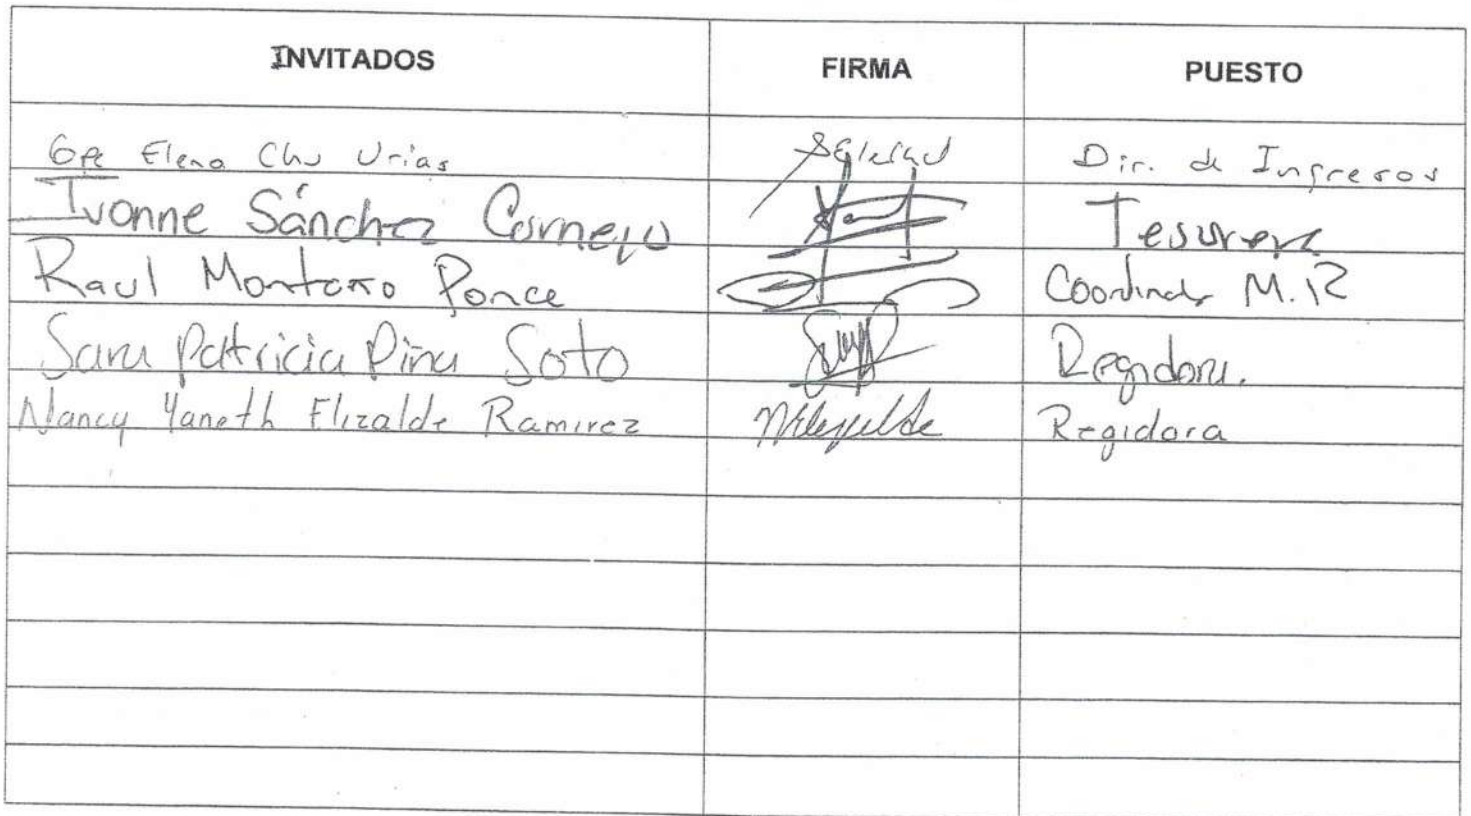 INVITADOS FIRMA PUESTO
Gpe Elena Chu Urias Dir. de Ingresos
Ivonne Sánchez Cornejo Tesorera
Raul Montoro Ponce Coordinador M.R
Sara Patricia Piña Soto Regidora.
Nancy Yaneth Elizalde Ramirez Regidora